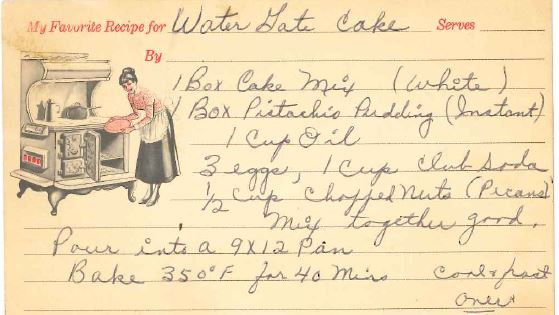 My Favorite Recipe for Water Gate Cake Serves
By
1 Box Cake Mix (White)
1 Box Pistachio Pudding (Instant)
1 Cup Oil
3 eggs, 1 Cup Club Soda
1/2 Cup Chopped Nuts (Picans)
Mix together good.
Pour into a 9X12 Pan
Bake 350°F for 40 Mins Cool & frost
over